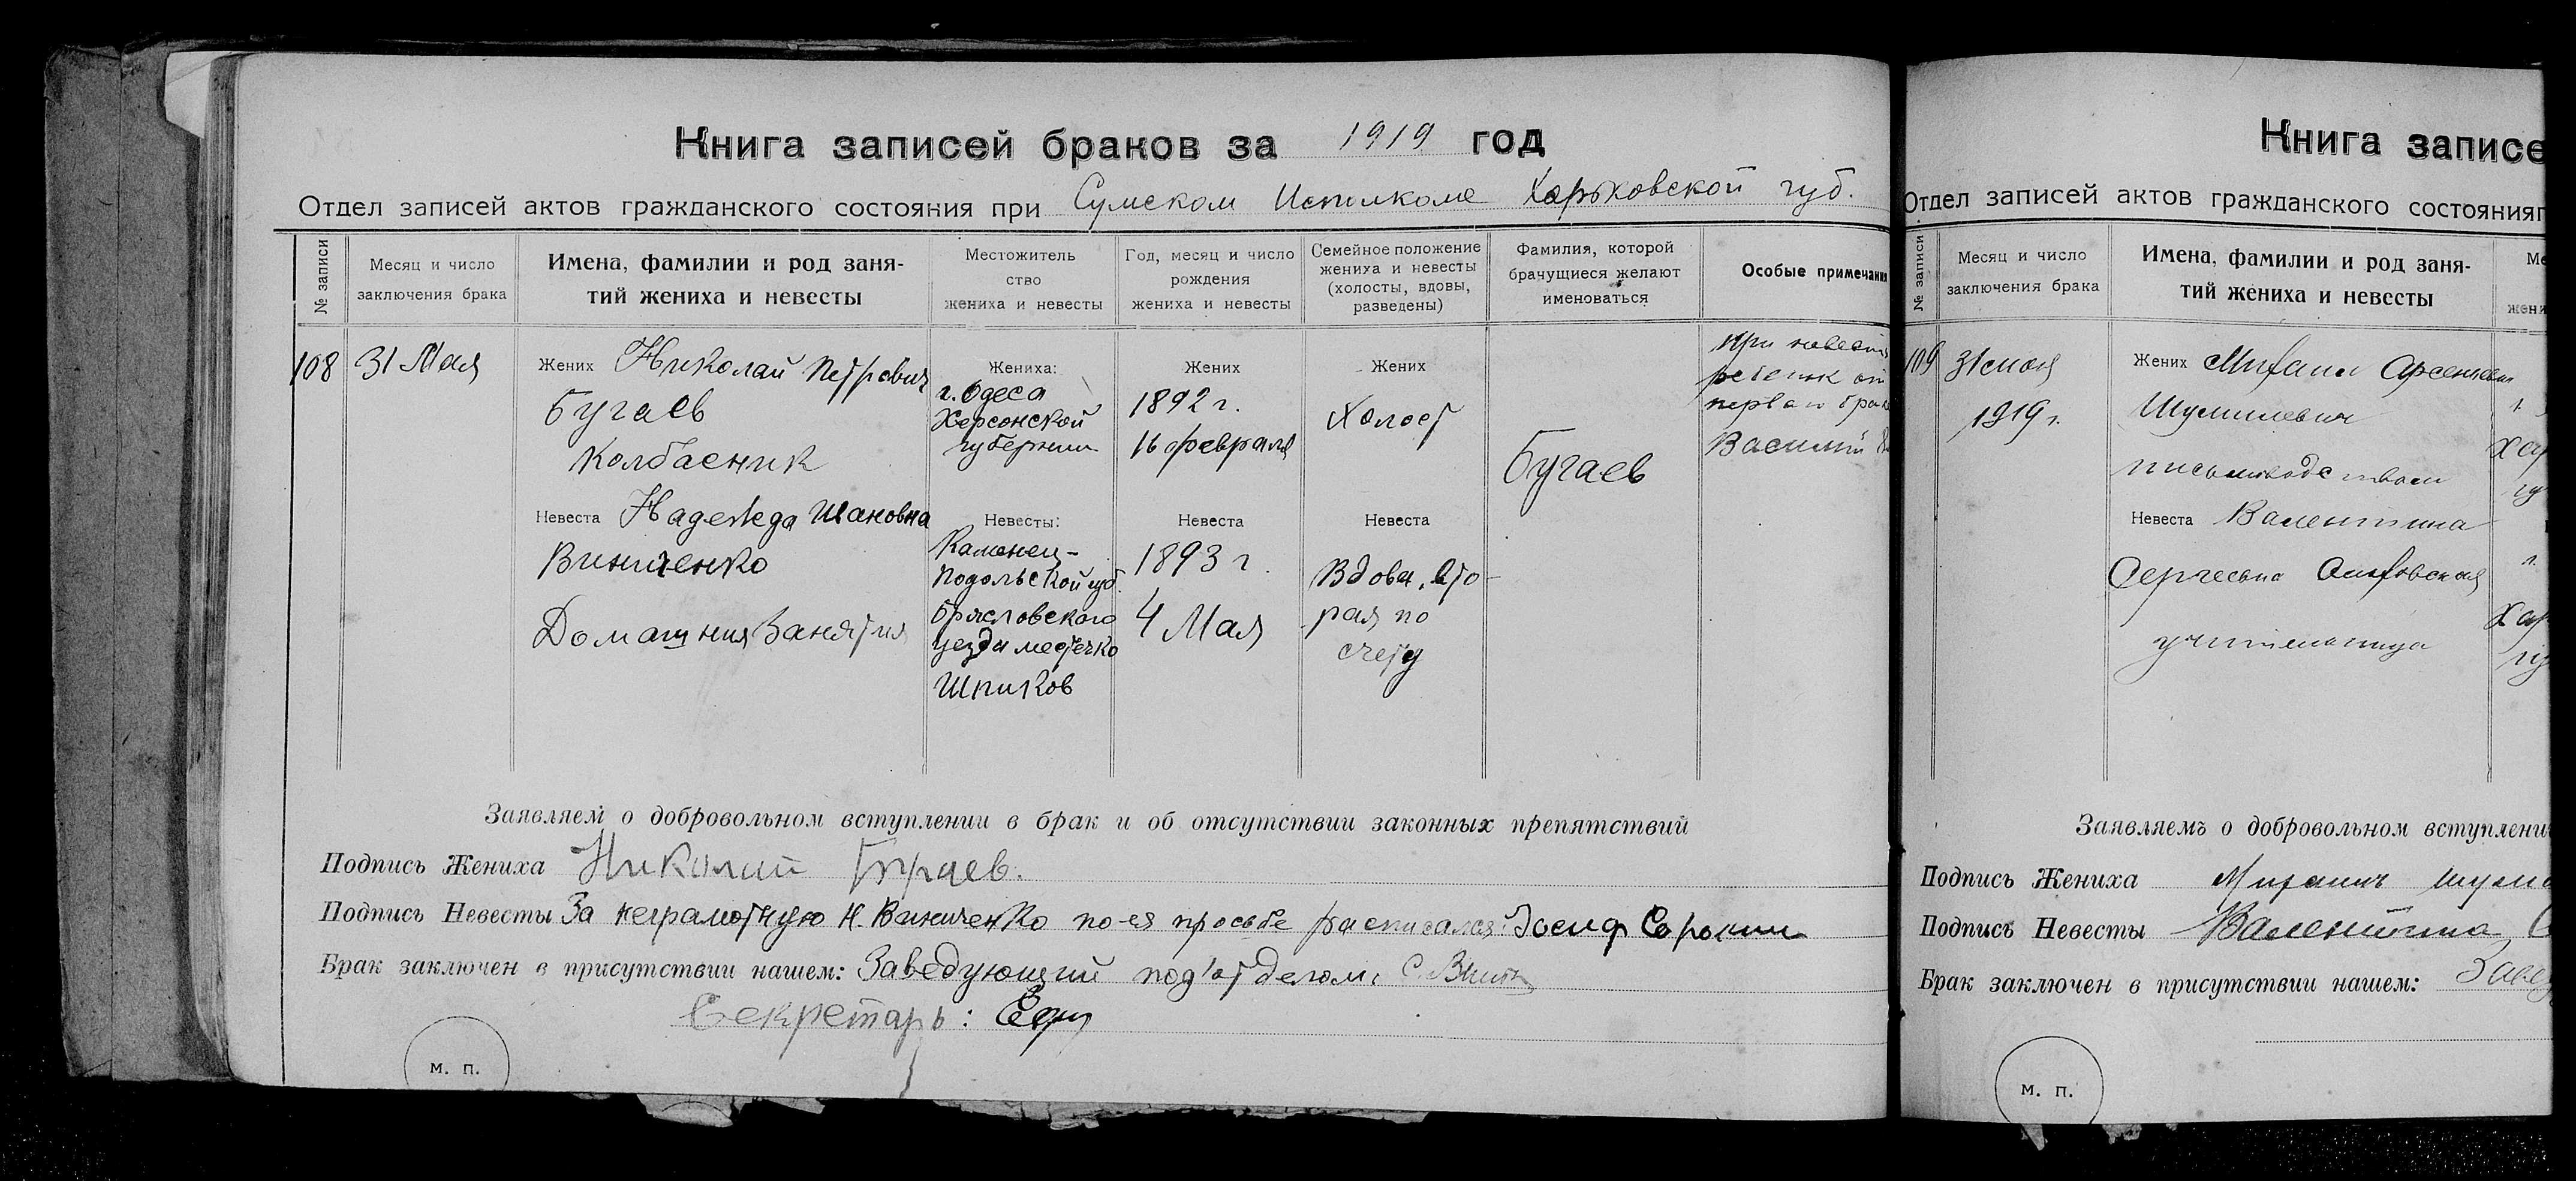 Книга записей браков за 1919 год
Отдел записей актов гражданского состояния при Сумском Исполкоме Харьковской губ.
№ записи
Месяц и число
заключения брака
Имена, фамилии и род заня-
тий жениха и невесты
Местожитель
ство
жениха и невесты
Год, месяц и число
рождения
жениха и невесты
Семейное положение
жениха и невесты
(холосты, вдовы,
разведены)
Фамилия, которой
брачущиеся желают
именоваться
Особые примечани
108
31 Мая
Жених Николай Петрович
Бугаев
Колбасник
Невеста Надежда Ивановна
Винниченко
Домашния Занятия
Жениха:
г. Одеса
Херсонской
губернии
Невесты:
Каменец-
Подольской губ.
Брясловского
уезда местечко
Шпиков
Жених
1892 г.
16 февраля
Невеста
1893 г.
4 Мая
Жених
Холост
Невеста
Вдова, вто-
рая по
счету
Бугаев
При невест
ребенок от
перваго брак
Василий
Заявляем о добровольном вступлении в брак и об отсутствии законных препятствий
Подпись Жениха Николай Бугаев.
Подпись Невесты За неграмотную Н. Винниченко по-ея просьбе расписался: Иосиф Сорокин
Брак заключен в присутствии нашем: Заведующий под'отделом:
Секретарь:
м. п.
Книга записе
Отдел записей актов гражданского состояния п
№ записи
Месяц и число
заключения брака
Имена, фамилии и род заня-
тий жениха и невесты
Ме
жени
109
31 мая
1919 г.
Жених Михаил Арсениевич
Шумилевич
письмоводством
Невеста Валентина
Сергеевна
учительница
г.
Хар
гу
г.
Хар
гу
Заявляемъ о добровольном вступлени
Подпись Жениха Михаилъ Шуми
Подпись Невесты Валентина
Брак заключен в присутствии нашем: Завед
м. п.